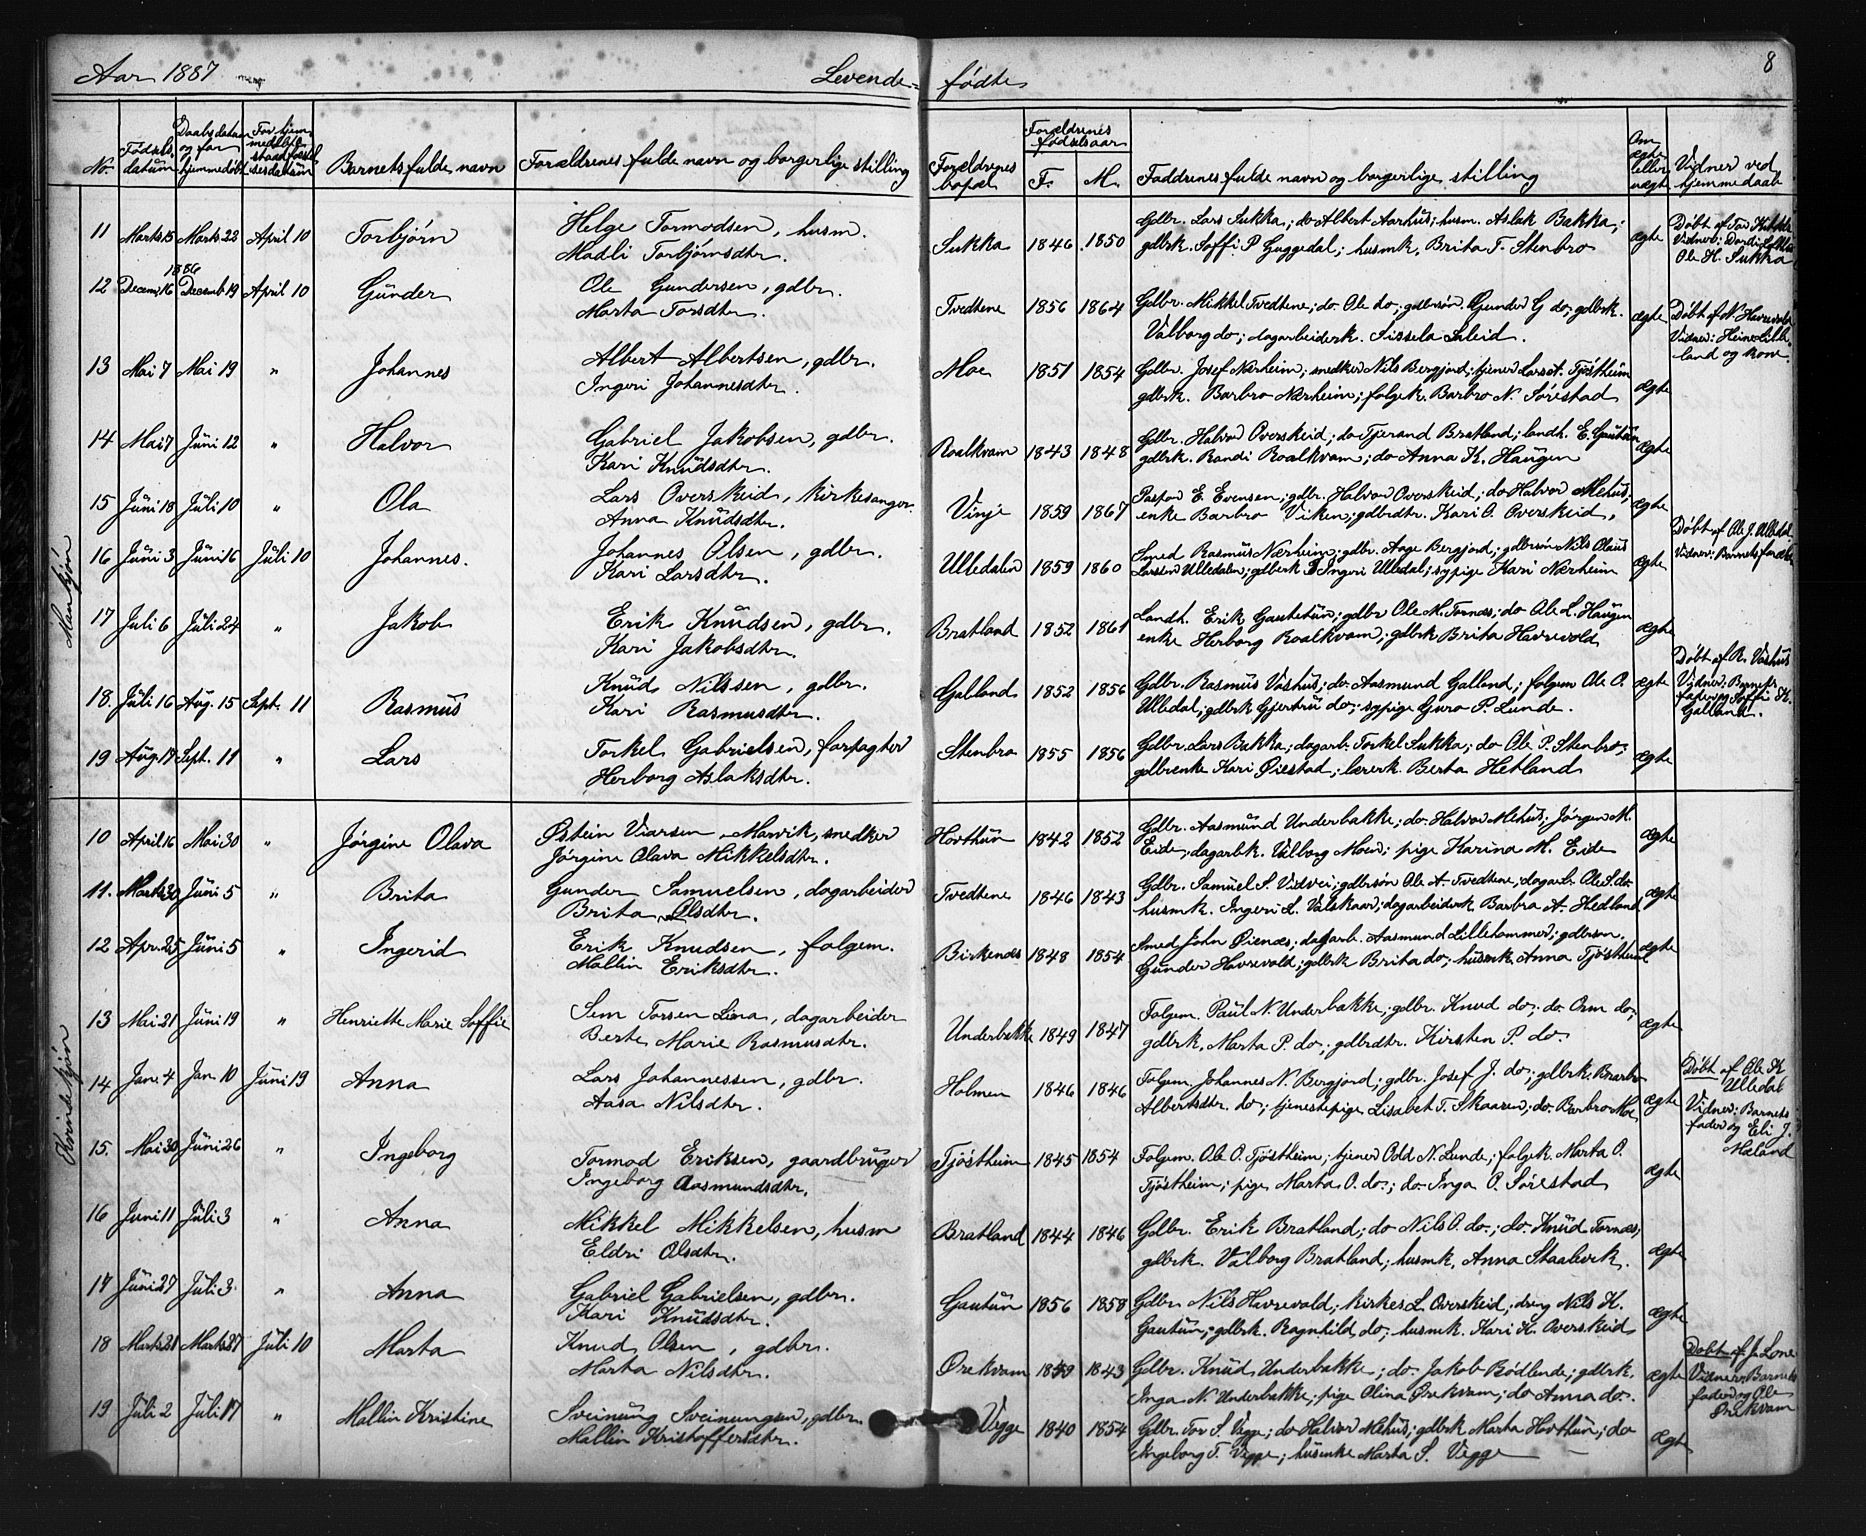 Aar 1887 Levende= fødte 8
No. Fødsels- datum Daabsdatum og for hjemmedøbt For hjemmedøbte stadfæstelsesdatum Barnets fulde navn Forældrenes fulde navn og borgerlige stilling Forældrenes bopæl Forældrenes fødselsaar F. M. Faddrenes fulde navn og borgerlige stilling Om ægte eller uægte Vidner ved hjemmedaab
Mankjøn
11 Marts 15 Marts 22 April 10 Torbjørn Helge Tormodsen, husm. Sukka 1846 1850 Gdbr. Lars Sukka; do Albert Aarhus; husm. Aslak Bakka; ægte Døbt af Tor
Madli Torbjørnsdtr. gdbrk. Soffi P. Guggedal; husmk. Brita T. Stenbro Vidner: Ole H. Sukka
1886
12 Decem. 16 Decemb 19 April 10 Günder Ole Gundersen, gdbr. Tvedtene 1856 1864 Gdbr. Mikkel Tvedtene; do. Ole do; gdbrsøn Gunder G do; gdbrk. ægte Døbt af N. Havrevold
Marta Torsdtr. Valborg do; dagarbeiderk. Sissela Saleid. Vidner: land og kone
13 Mai 7 Mai 19 " Johannes Albert Albertsen, gdbr. Moe 1851 1854 Gdbr. Josef Nærheim; snedker Nils Bergjord; tjener Lars Tjøstheim ægte
Ingeri Johannesdtr. gdbrk. Barbro Nærheim; folgek. Barbro N. Sørestad
14 Mai 7 Jüni 12 " Halvor Gabriel Jakobsen, gdbr. Roalkvam 1843 1848 Gdbr. Halvor Overskeid; do Tjerand Bratland; landh. E. Gautün ægte
Kari Knüdsdtr. gdbrk. Randi Roalkvam; do Anna K. Haügen
15 Jüni 18 Jüli 10 " Ola Lars Overskeid, kirkesanger Vinje 1859 1867 E. Evensen; gdbr. Halvor Overskeid; do Halvor Mehüs; ægte
Anna Knüdsdtr. enke Barbro Viken; gdbrdtr. Kari O. Overskeid,
16 Jüni 3 Jüni 16 Jüli 10 Johannes. Johannes Olsen, gdbr. Ulledalen 1859 1860 Smed Rasmüs Nærheim; gdbr. Aage Bergjord; gdbrsøn Nils Olaüs ægte Døbt af Ole J. Ulledal
Kari Larsdtr. Larsen Ulledalen; gdbrk Ingeri Ulledal; sypige Kari Nærheim Vidner: Barnets forældre
17 Juli 6 Jüli 24 " Jakob Erik Knüdsen, gdbr. Bratland 1852 1861 Landh. Erik Gautetün; gdbr Ole M. Tornæs; do Ole L. Haügen ægte
Kari Jakobsdtr. enke Herborg Roalkvam; gdbrk Brita Havrevold
18. Jüli 16 Aüg. 15 Sept. 11 Rasmüs Knüd Nilssen, gdbr. Galland 1852 1856 Gdbr. Rasmüs Vashüs; do. Aasmund Galland; folgem Ole O. ægte Døbt af R. Vashüs
Kari Rasmusdtr. Ulledal; gdbrk Gjertrü do; sypige Guro P. Lunde. Vidner: Barnets fader og Soffi K. Galland.
19 Aüg. 19 Sept. 11 " Lars Torkel Gabrielsen, forpagter Stenbro 1855 1856 Gdbr. Lars Bakka; dagarb. Torkel Sukka; do Ole P. Stenbro; ægte
Herborg Aslaksdtr. gdbrenke Kari Øiestad; lærerk. Berta Hetland
Kvindekjøn
10 April 16 Mai 30 " Jørgine Olava Østein Viarsen Marvik, snedker Hovthün 1842 1852 Gdbr. Aasmünd Underbakke; do. Halvor Mehüs; Jørgen M. ægte
Jørgine Olava Mikkelsdtr. Eide; dagarbk. Valborg Moen; pige Karina M. Eide
11. Marts 30 Jüni 5 " Brita Gunder Samuelsen, dagarbeider Tvedtene 1846 1843 Gdbr. Samüel S. Vidvei; gdbrsøn Ole A. Tvedtene; dagarb. Ole S. do. ægte
Brita Olsdtr. husmk. Ingeri L. Valskaar; dagarbeiderk Barbra A. Hedland
12 Apr. 25 Jüni 5 " Ingerid Erik Knudsen, folgem. Birkenæs 1848 1854 Smed John Øienæs; dagarb. Aasmund Lillehammer; gdbrsøn. ægte
Mallin Eriksdtr. Günder Havrevold; gdbrk Brita do; husmk Anna Tjøstheim
13 Mai 21 Jüni 19 " Henriette Marie Soffie Sem Torsen Lima, dagarbeider Underbakke 1849 1847 Folgem. Paül N. Underbakke; gdbr. Knud do; do. Orm do; ægte
Berte Marie Rasmusdtr. gdbrk. Marta P. do; gdbrdtr. Kirsten P. do.
14 Jan. 4 Jan 10 Jüni 19 Anna Lars Johannessen, gdbr. Holmen 1846 1846 Folgem. Johannes N. Bergjord; gdbr. Josef J. do; gdbrk. Barbro ægte Døbt af Ole K Ulledal
Aasa Nilsdtr. Albertsdtr. do; tjenestepige Lisabet T. Skaaren; do. Barbro Moe Vidner: Barnets fader og Eli J. Mæland
15. Mai 30 Jüni 26 " Ingeborg Tormod Eriksen, gaardbrüger Tjøstheim 1845 1854 Folgem. Ole O. Tjøstheim; tjener Odd N. Lunde; folgek. Marta O. ægte
Ingeborg Aasmundsdtr. Tjøstheim; pige Marta O. do; do. Inga O. Sørestad
16 Juni 11 Jüli 3 " Anna Mikkel Mikkelsen, husm Bratland 1844 1846 Gdbr. Erik Bratland; do Nils O. do; do. Knüd Tornæs; ægte
Eldri Olsdtr. gdbrk. Valborg Bratland; husmk. Anna Staalvik.
17 Jüni 27 Jüli 3. " Anna Gabriel Gabrielsen, gdbr. Gautün 1856 1858 Gdbr Nils Havrevold; kirkes L. Overskeid; dreng Nils K. ægte
Kari Knüdsdtr. Gautün; gdbrk. Ragnhild do; husmk. Kari K. Overskeid
18 Marts 21 Marts 27 Jüli 10 Marta Knud Olsen, gdbr. Ørekvam 1849 1843 Gdbr. Knüd Underbakke; do. Jakob Bødlende; gdbrk. ægte Døbt af J. Lone
Marta Nilsdtr. Inga N. Underbakke; pige Olina Ørekvam; do Anna do. Vidner: Barnets fader og Ole Ørekvam
19 Jüli 2 Jüli 17 " Mallin Kristine Sveinüng Sveinungsen, gdbr. Vegge 1840 1854 Gdbr. Tor S. Vegge; do Halvor Mehüs; gdbrk Marta Hovthün; do ægte
Mallin Kristoffersdtr. Ingeborg T. Vegge; hüsenke Marta S. Vegge